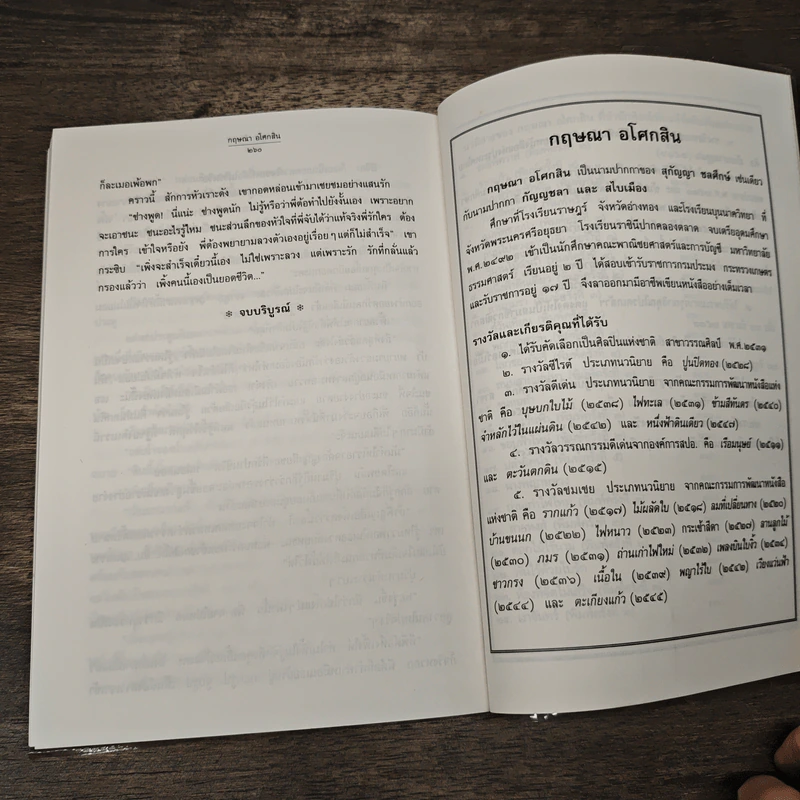 กฤษณา อโศกสิน
๒๖๐
ก็ละเมอเพ้อพก"
คราวนี้ สักการหัวเราะดัง เขากอดหล่อนเข้ามาเชยชมอย่างแสนรัก
"ช่างพูด! นี่แน่ะ ช่างพูดนัก ไม่รู้หรือว่าพี่ต้อทำไปยังงั้นเอง เพราะอยาก
จะเอาชนะ ชนะอะไรรู้ไหม ชนะส่วนลึกของหัวใจที่พี่จับได้ว่าแท้จริงพี่รักใคร ต้อง
การใคร เข้าใจหรือยัง พี่ต้องพยายามลวงตัวเองอยู่เรื่อยๆ แต่ก็ไม่สำเร็จ" เขา
กระซิบ "เพิ่งจะสำเร็จเดี๋ยวนี้เอง ไม่ใช่เพราะลวง แต่เพราะรัก รักที่กลั่นแล้ว
กรองแล้วว่า เพิ้งคนนี้เองเป็นยอดชีวิต..."
❊ จบบริบูรณ์ ❊
กฤษณา อโศกสิน
กฤษณา อโศกสิน เป็นนามปากกาของ สุกัญญา ชลศึกษ์ เช่นเดียว
กับนามปากกา กัญญ์ชลา และ สไบเมือง
ศึกษาที่โรงเรียนราษฎร์ จังหวัดอ่างทอง และโรงเรียนบุนนาควิทยา ที่
จังหวัดพระนครศรีอยุธยา โรงเรียนราชินีปากคลองตลาด จบเตรียมอุดมศึกษา
พ.ศ.๒๔๙๒ เข้าเป็นนักศึกษาคณะพาณิชยศาสตร์และการบัญชี มหาวิทยาลัย
ธรรมศาสตร์ เรียนอยู่ ๒ ปี ได้สอบเข้ารับราชการกรมประมง กระทรวงเกษตร
และรับราชการอยู่ ๑๗ ปี จึงลาออกมามีอาชีพเขียนหนังสืออย่างเต็มเวลา
รางวัลและเกียรติคุณที่ได้รับ
๑. ได้รับคัดเลือกเป็นศิลปินแห่งชาติ สาขาวรรณศิลป์ พ.ศ.๒๕๓๑
๒. รางวัลซีไรต์ ประเภทนวนิยาย คือ ปูนปิดทอง (๒๕๒๘)
๓. รางวัลดีเด่น ประเภทนวนิยาย จากคณะกรรมการพัฒนาหนังสือแห่ง
ชาติ คือ บุษบกใบไม้ (๒๕๓๘) ไฟทะเล (๒๕๓๑) ข้ามสีทันดร (๒๕๔๐)
จำหลักไว้ในแผ่นดิน (๒๕๔๒) และ หนึ่งฟ้าดินเดียว (๒๕๔๗)
๔. รางวัลวรรณกรรมดีเด่นจากองค์การสปอ. คือ เรือมนุษย์ (๒๕๑๑)
และ ตะวันตกดิน (๒๕๑๕)
๕. รางวัลชมเชย ประเภทนวนิยาย จากคณะกรรมการพัฒนาหนังสือ
แห่งชาติ คือ รากแก้ว (๒๕๑๗) ไม้ผลัดใบ (๒๕๑๘) ลมที่เปลี่ยนทาง (๒๕๒๐)
บ้านขนนก (๒๕๒๒) ไฟหนาว (๒๕๒๓) กระเช้าสีดา (๒๕๒๗) ลานลูกไม้
(๒๕๓๐) ภมร (๒๕๓๑) ถ่านเก่าไฟใหม่ (๒๕๓๒) เพลงบินใบงิ้ว (๒๕๓๔)
ชาวกรง (๒๕๓๖) เนื้อใน (๒๕๓๙) พญาไร้ใบ (๒๕๔๒) เวียงแว่นฟ้า
(๒๕๔๔) และ ตะเกียงแก้ว (๒๕๔๕)